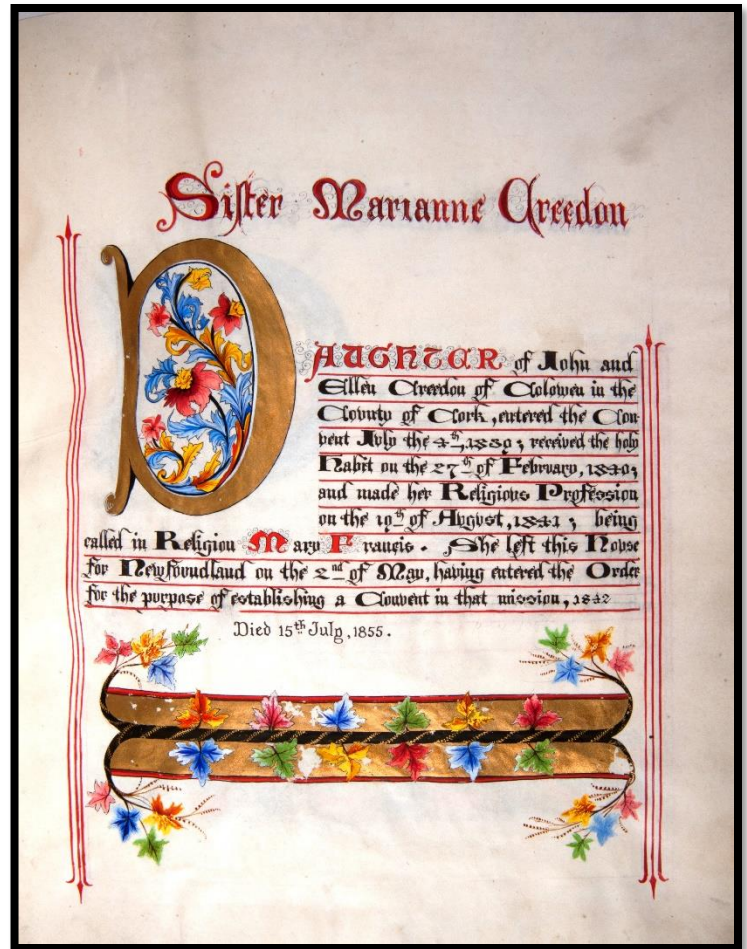 Sister Marianne Creedon
DAUGHTER of John and
Ellen Creedon of Colowen in the
County of Cork, entered the Con-
vent July the 4th, 1839; received the holy
Habit on the 27th of February, 1840;
and made her Religious Profession
on the 19th of August, 1841; being
called in Religion Mary Francis. She left this House
for Newfoundland on the 2nd of May, having entered the Order
for the purpose of establishing a Convent in that mission, 1842
Died 15th July, 1855.